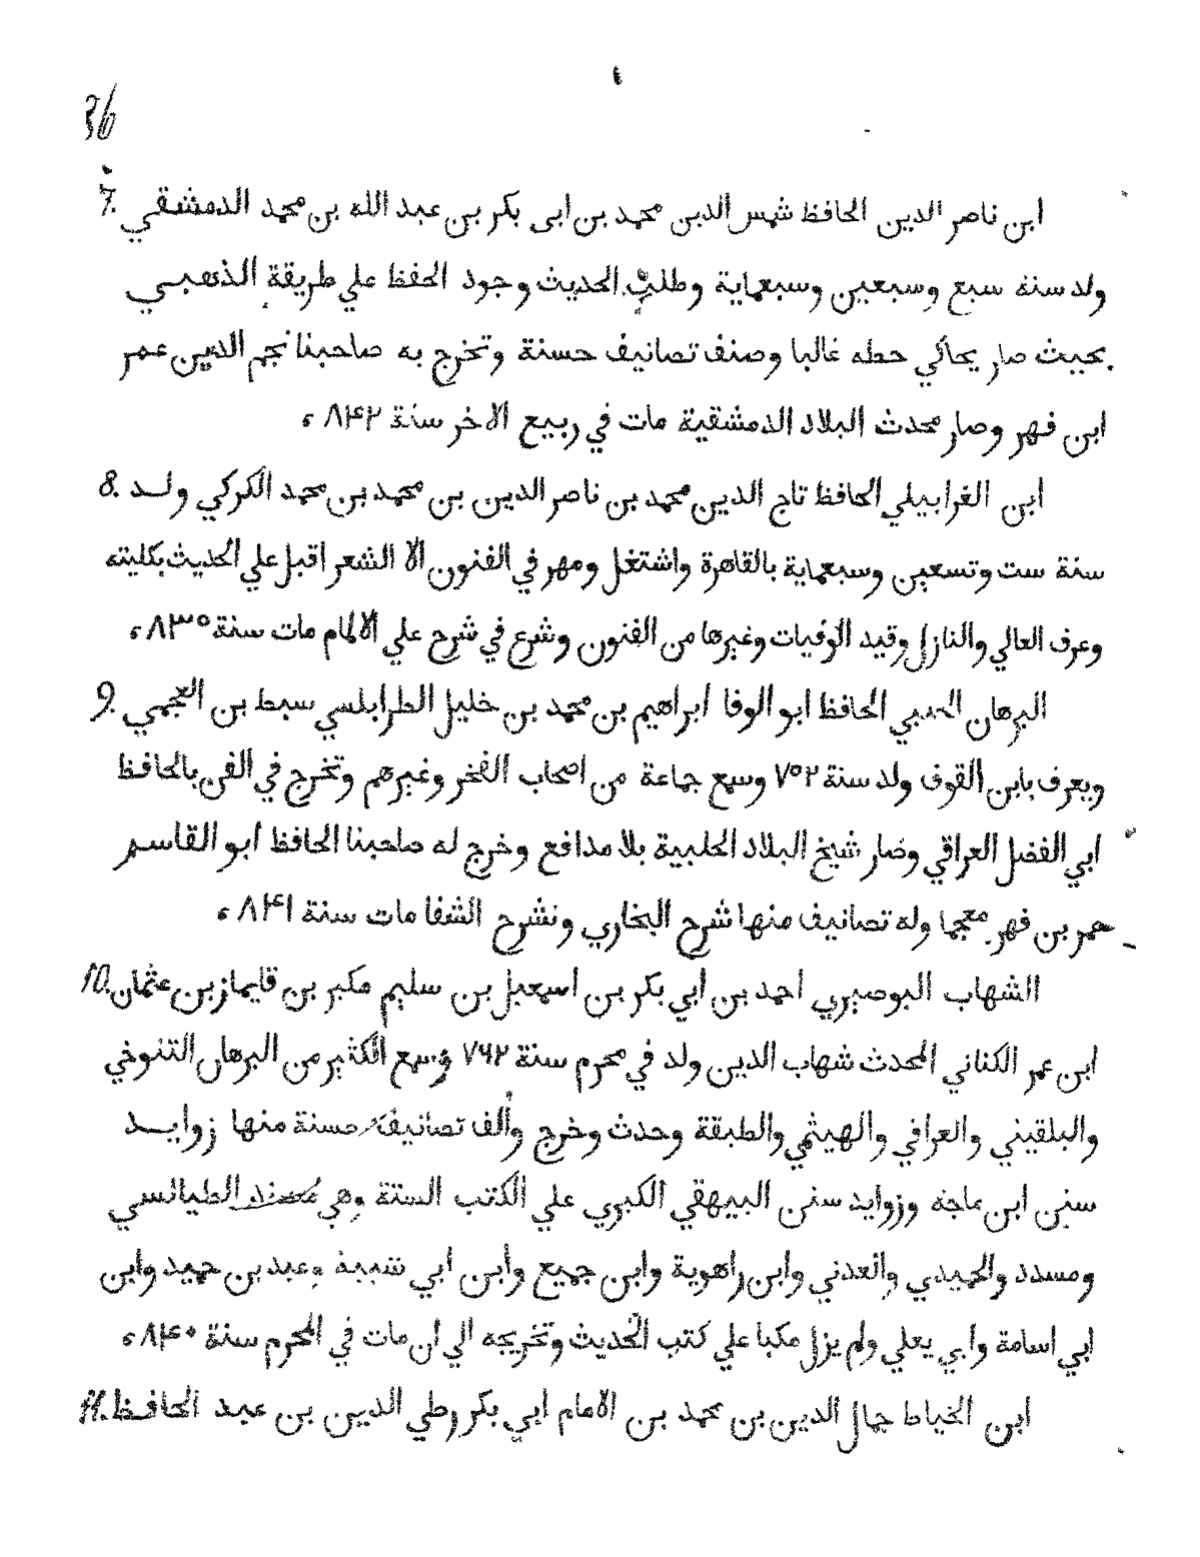 36
7. ابن ناصر الدين الحافظ شمس الدين محمد بن ابى بكر بن عبد الله بن محمد الدمشقي
ولد سنة سبع وسبعين وسبعماية وطلب الحديث وجود الحفظ علي طريقة الذهبي
بحيث صار يحاكي خطه غالبا وصنف تصانيف حسنة وتخرج به صاحبنا نجم الدين عمر
ابن فهر وصار محدث البلاد الدمشقية مات في ربيع الاخر سنة ۸۴۲ ،
8. ابن الغرابيلي الحافظ تاج الدين محمد بن ناصر الدين بن محمد بن محمد الكركي ولد
سنة ست وتسعين وسبعماية بالقاهرة واشتغل ومهر في الفنون الا الشعر اقبل علي الحديث بكليته
وعرف العالي والنازل وقيد الوفيات وغيرها من الفنون وشرع في شرح علي الالمام مات سنة ۸۳۵ ،
9. البرهان الحلبي الحافظ ابو الوفا ابراهيم بن محمد بن خليل الطرابلسي سبط بن العجمي
ويعرف بابن القوف ولد سنة ۷۵۲ وسمع جماعة من اصحاب الفخر وغيرهم وتخرج في الفن بالحافظ
ابي الفضل العراقي وصار شيخ البلاد الحلبية بلا مدافع وخرج له صاحبنا الحافظ ابو القاسم
عمر بن فهر معجما وله تصانيف منها شرح البخاري ونشرح الشفا مات سنة ۸۴۱ ،
10. الشهاب البوصيري احمد بن ابي بكر بن اسمعيل بن سليم مكبر بن قايماز بن عثمان
ابن عمر الكناني المحدث شهاب الدين ولد في محرم سنة ۷۶۲ وسمع الكثير من البرهان التنوخي
والبلقيني والعراقي والهيثمي والطبقة وحدث وخرج وألف تصانيف حسنة منها زوايد
سنن ابن ماجه وزوايد سنن البيهقي الكبري علي الكتب الستة وهي مسند الطيالسي
ومسدد والحميدي والعدني وابن راهوية وابن جميع وابن ابي شيبة وعبد بن حميد وابن
ابي اسامة وابي يعلي ولم يزل مكبا علي كتب الحديث وتخريجه الي ان مات في المحرم سنة ۸۴۰ ،
11. ابن الخياط جمال الدين بن محمد بن الامام ابي بكر رضي الدين بن عبد الحافظ